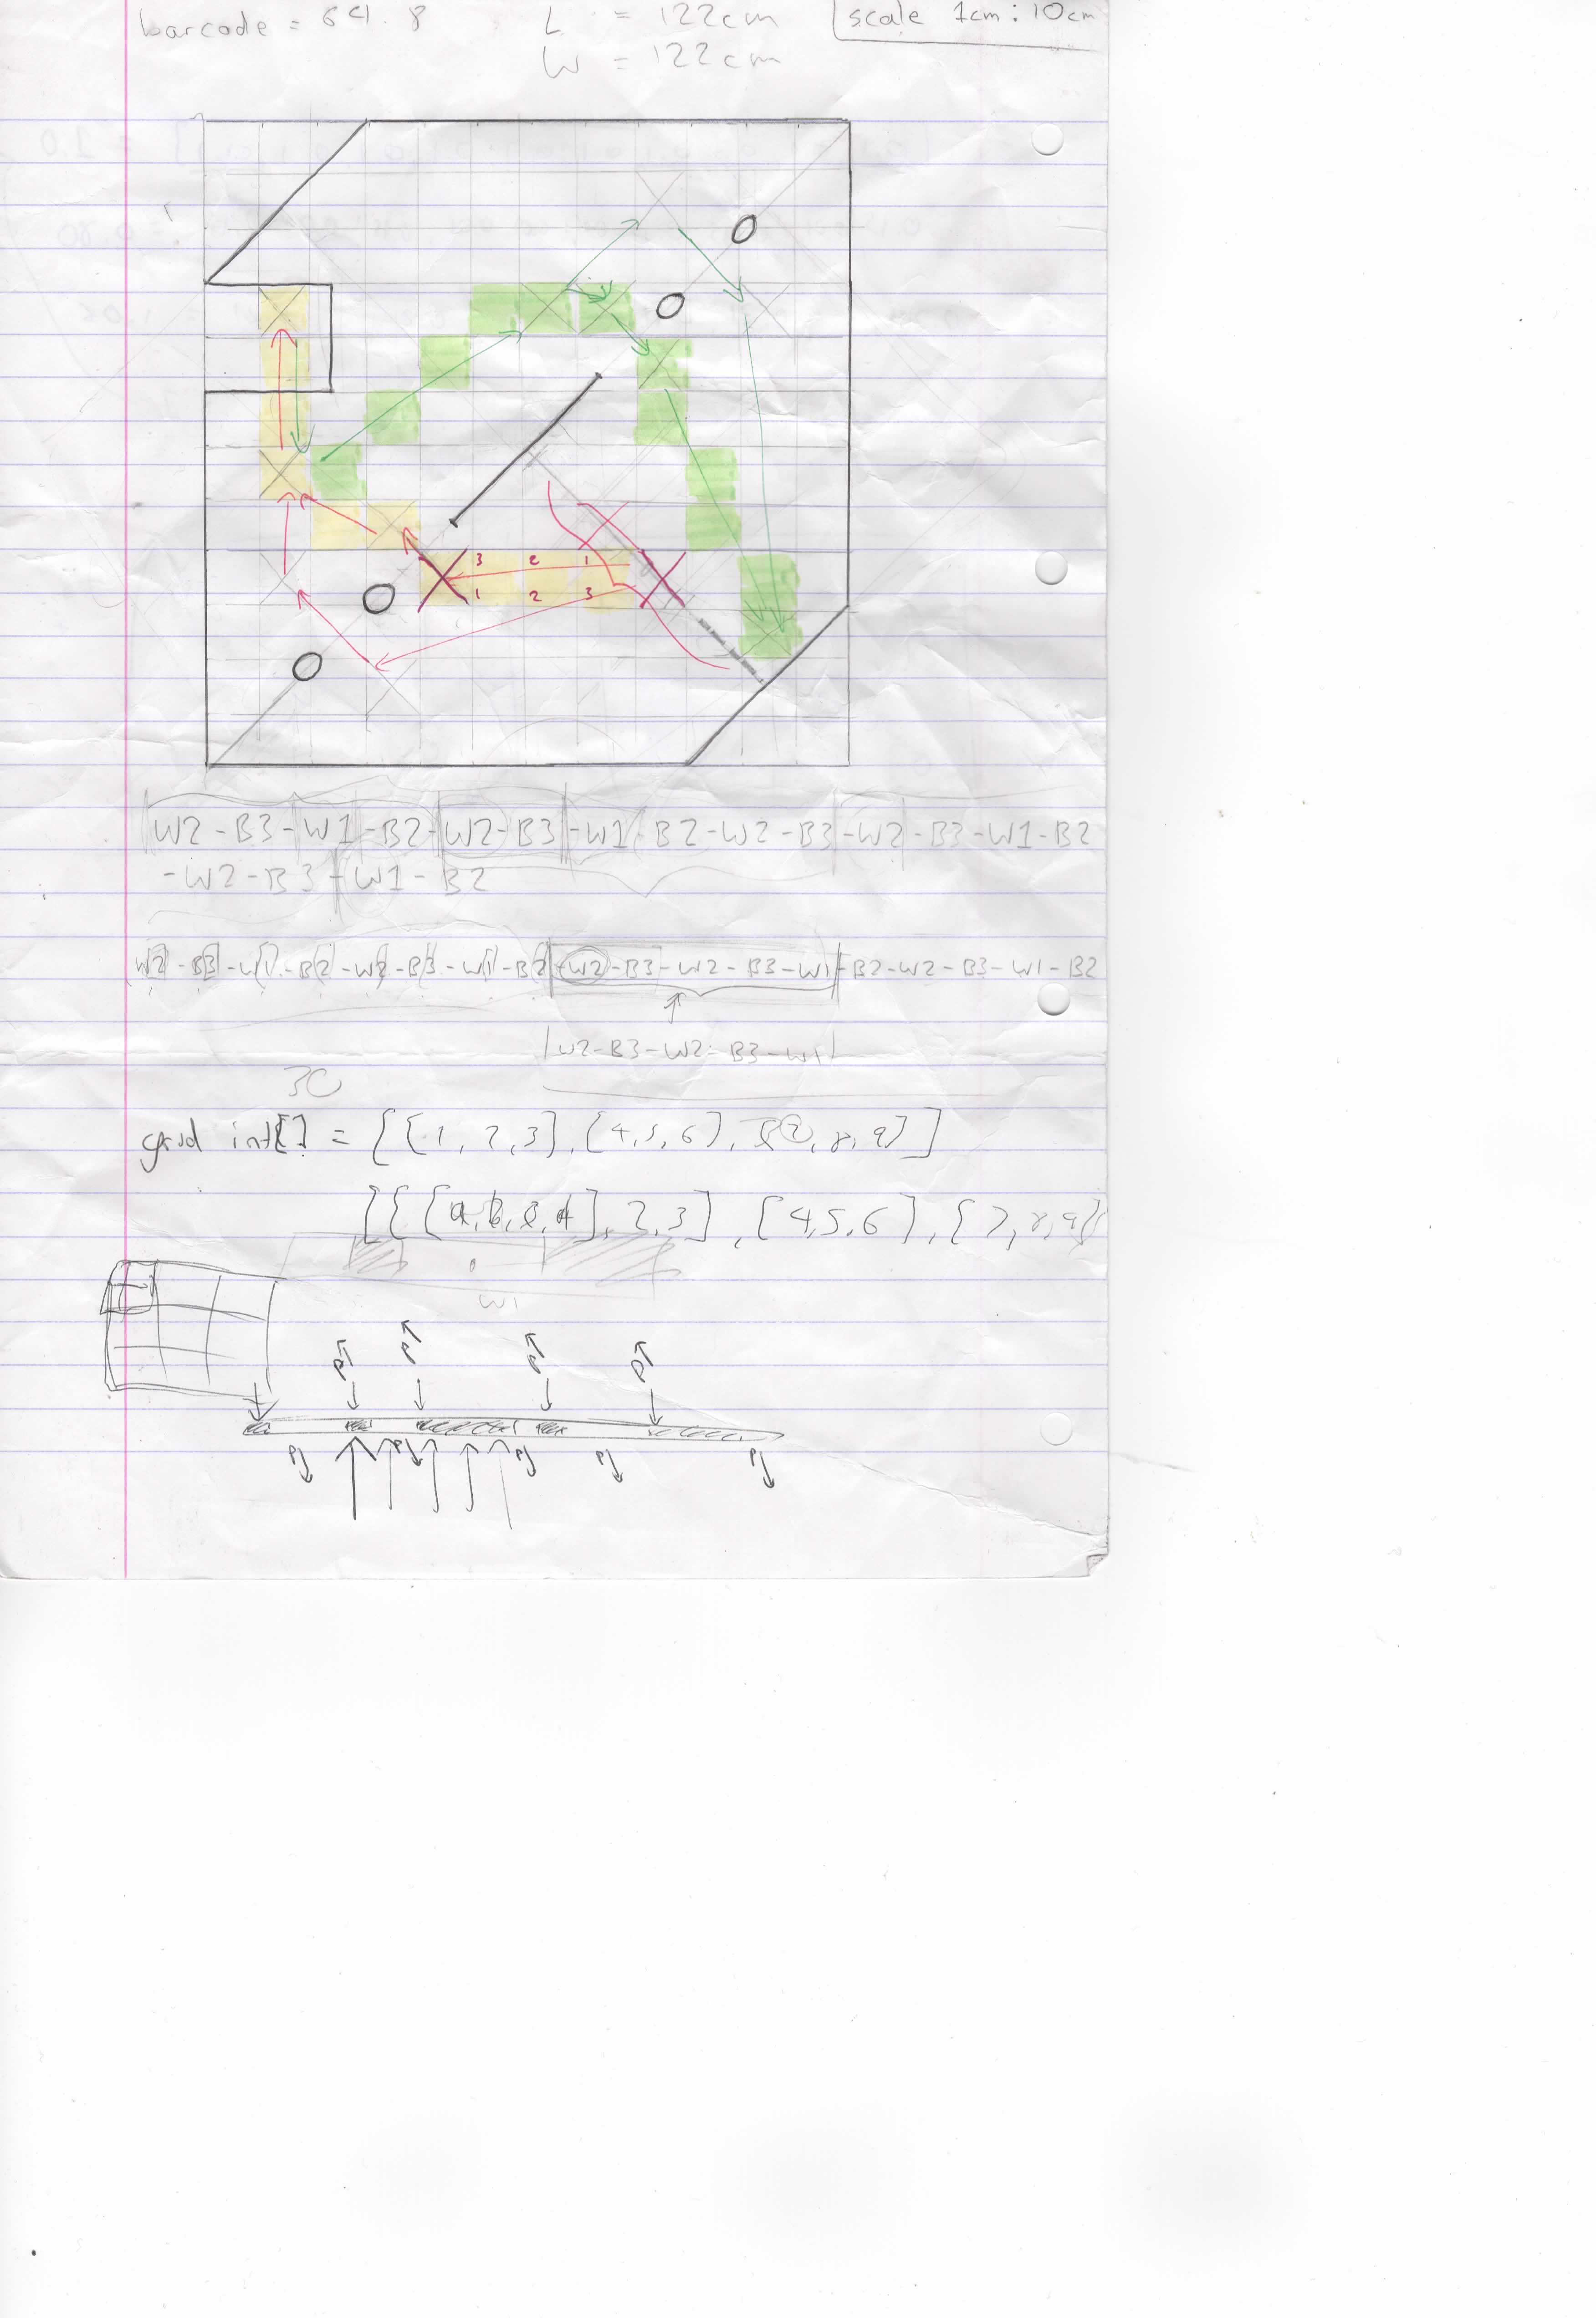 barcode = 64.8 L = 122cm scale 1cm : 10cm
W = 122cm
3 2 1
1 2 3
W2-B3-W1-B2-W2-B3-W1-B2-W2-B3-W2-B3-W1-B2
-W2-B3-W1-B2
W2-B3-W1-B2-W2-B3-W1-B2-W2-B3-W2-B3-W1-B2-W2-B3-W1-B2
W2-B3-W2-B3-W1
30
grid int[] = [[1,2,3],[4,5,6],[7,8,9]]
2,3],[4,5,6],[7,8,9]
W1